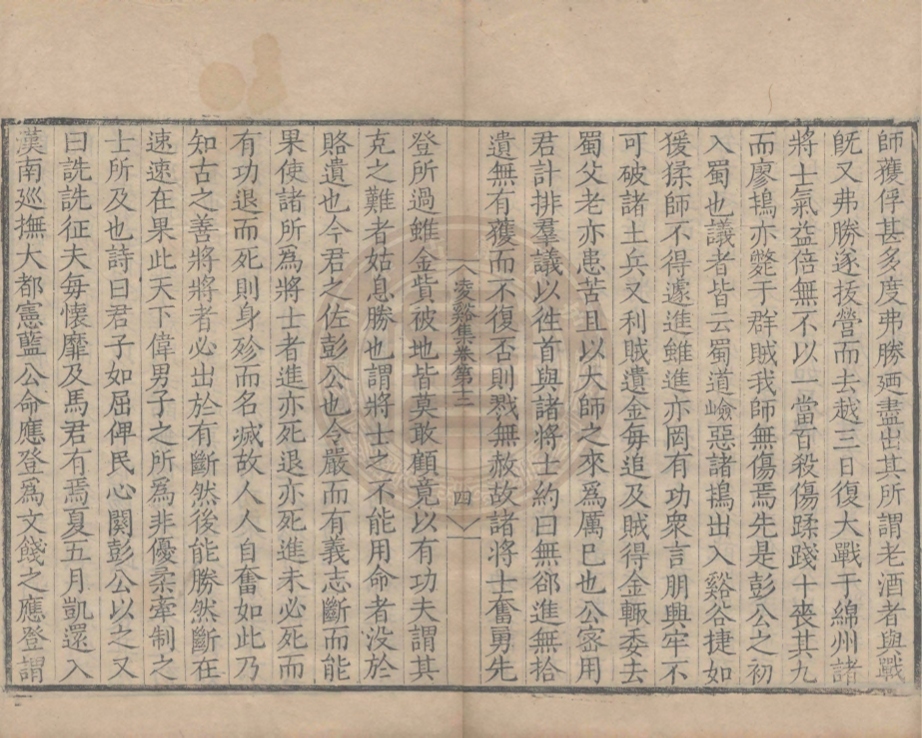 師獲俘甚多度弗勝廼盡出其所謂老酒者與戰
旣又弗勝逐拔營而去越三日復大戰于綿州諸
將士氣益倍無不以一當百殺傷蹂踐十喪其九
而廖㨶亦斃于群賊我師無傷焉先是彭公之初
入蜀也議者皆云蜀道嶮惡諸㨶出入谿谷捷如
猨猱師不得遽進雖進亦罔有功衆言朋興牢不
可破諸土兵又利賊遺金每追及賊得金輙委去
蜀父老亦患苦且以大師之來爲厲已也公宻用
君計排羣議以徃首與諸將士約曰無郤進無拾
遺無有獲而不復否則戮無赦故諸將士奮勇先
凌谿集卷第十二 四
登所過雖金貲被地皆莫敢顧竟以有功夫謂其
克之難者姑息勝也謂將士之不能用命者没於
賂遺也今君之佐彭公也令嚴而有義志斷而能
果使諸所爲將士者進亦死退亦死進未必死而
有功退而死則身殄而名滅故人人自奮如此乃
知古之善將將者必出於有斷然後能勝然斷在
速速在果此天下偉男子之所爲非優柔牽制之
士所及也詩曰君子如屆俾民心闋彭公以之又
曰詵詵征夫每懷靡及馬君有焉夏五月凱還入
漢南廵撫大都憲藍公命應登爲文餞之應登謂